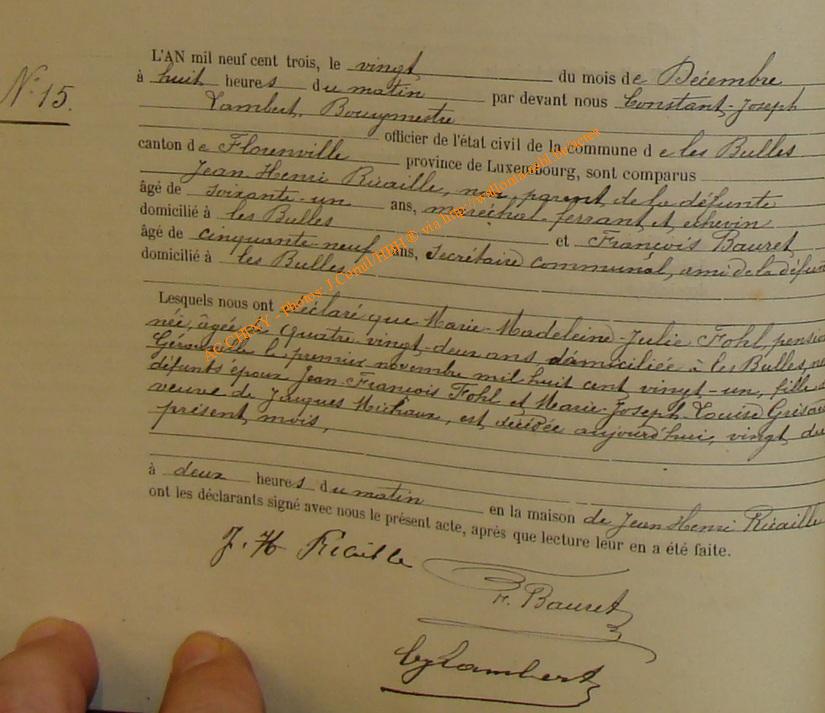 N° 15.
L'AN mil neuf cent trois, le vingt du mois de Décembre
à huit heures du matin par devant nous Constant-Joseph
Lambert, Bourgmestre
officier de l'état civil de la commune de les Bulles
canton de Florenville province de Luxembourg, sont comparus
Jean Henri Ricaille, non parent de la défunte
âgé de soixante-un ans, maréchal-ferrant et échevin
domicilié à les Bulles et François Bauret
âgé de cinquante-neuf ans, secrétaire communal, ami de la défun
domicilié à les Bulles
Lesquels nous ont déclaré que Marie-Madeleine-Julie Fohl, pension
née, âgée de quatre-vingt-deux ans domiciliée à les Bulles, né
le premier novembre mil huit cent vingt-un, fille
défunts époux Jean-François Fohl et Marie-Joseph-Louise
veuve de Jacques Michaux, est décédée aujourd'hui, vingt du
présent mois,
à deux heures du matin en la maison de Jean Henri Ricaille
ont les déclarants signé avec nous le présent acte, après que lecture leur en a été faite.
J. H Ricaille
F. Bauret
Lambert